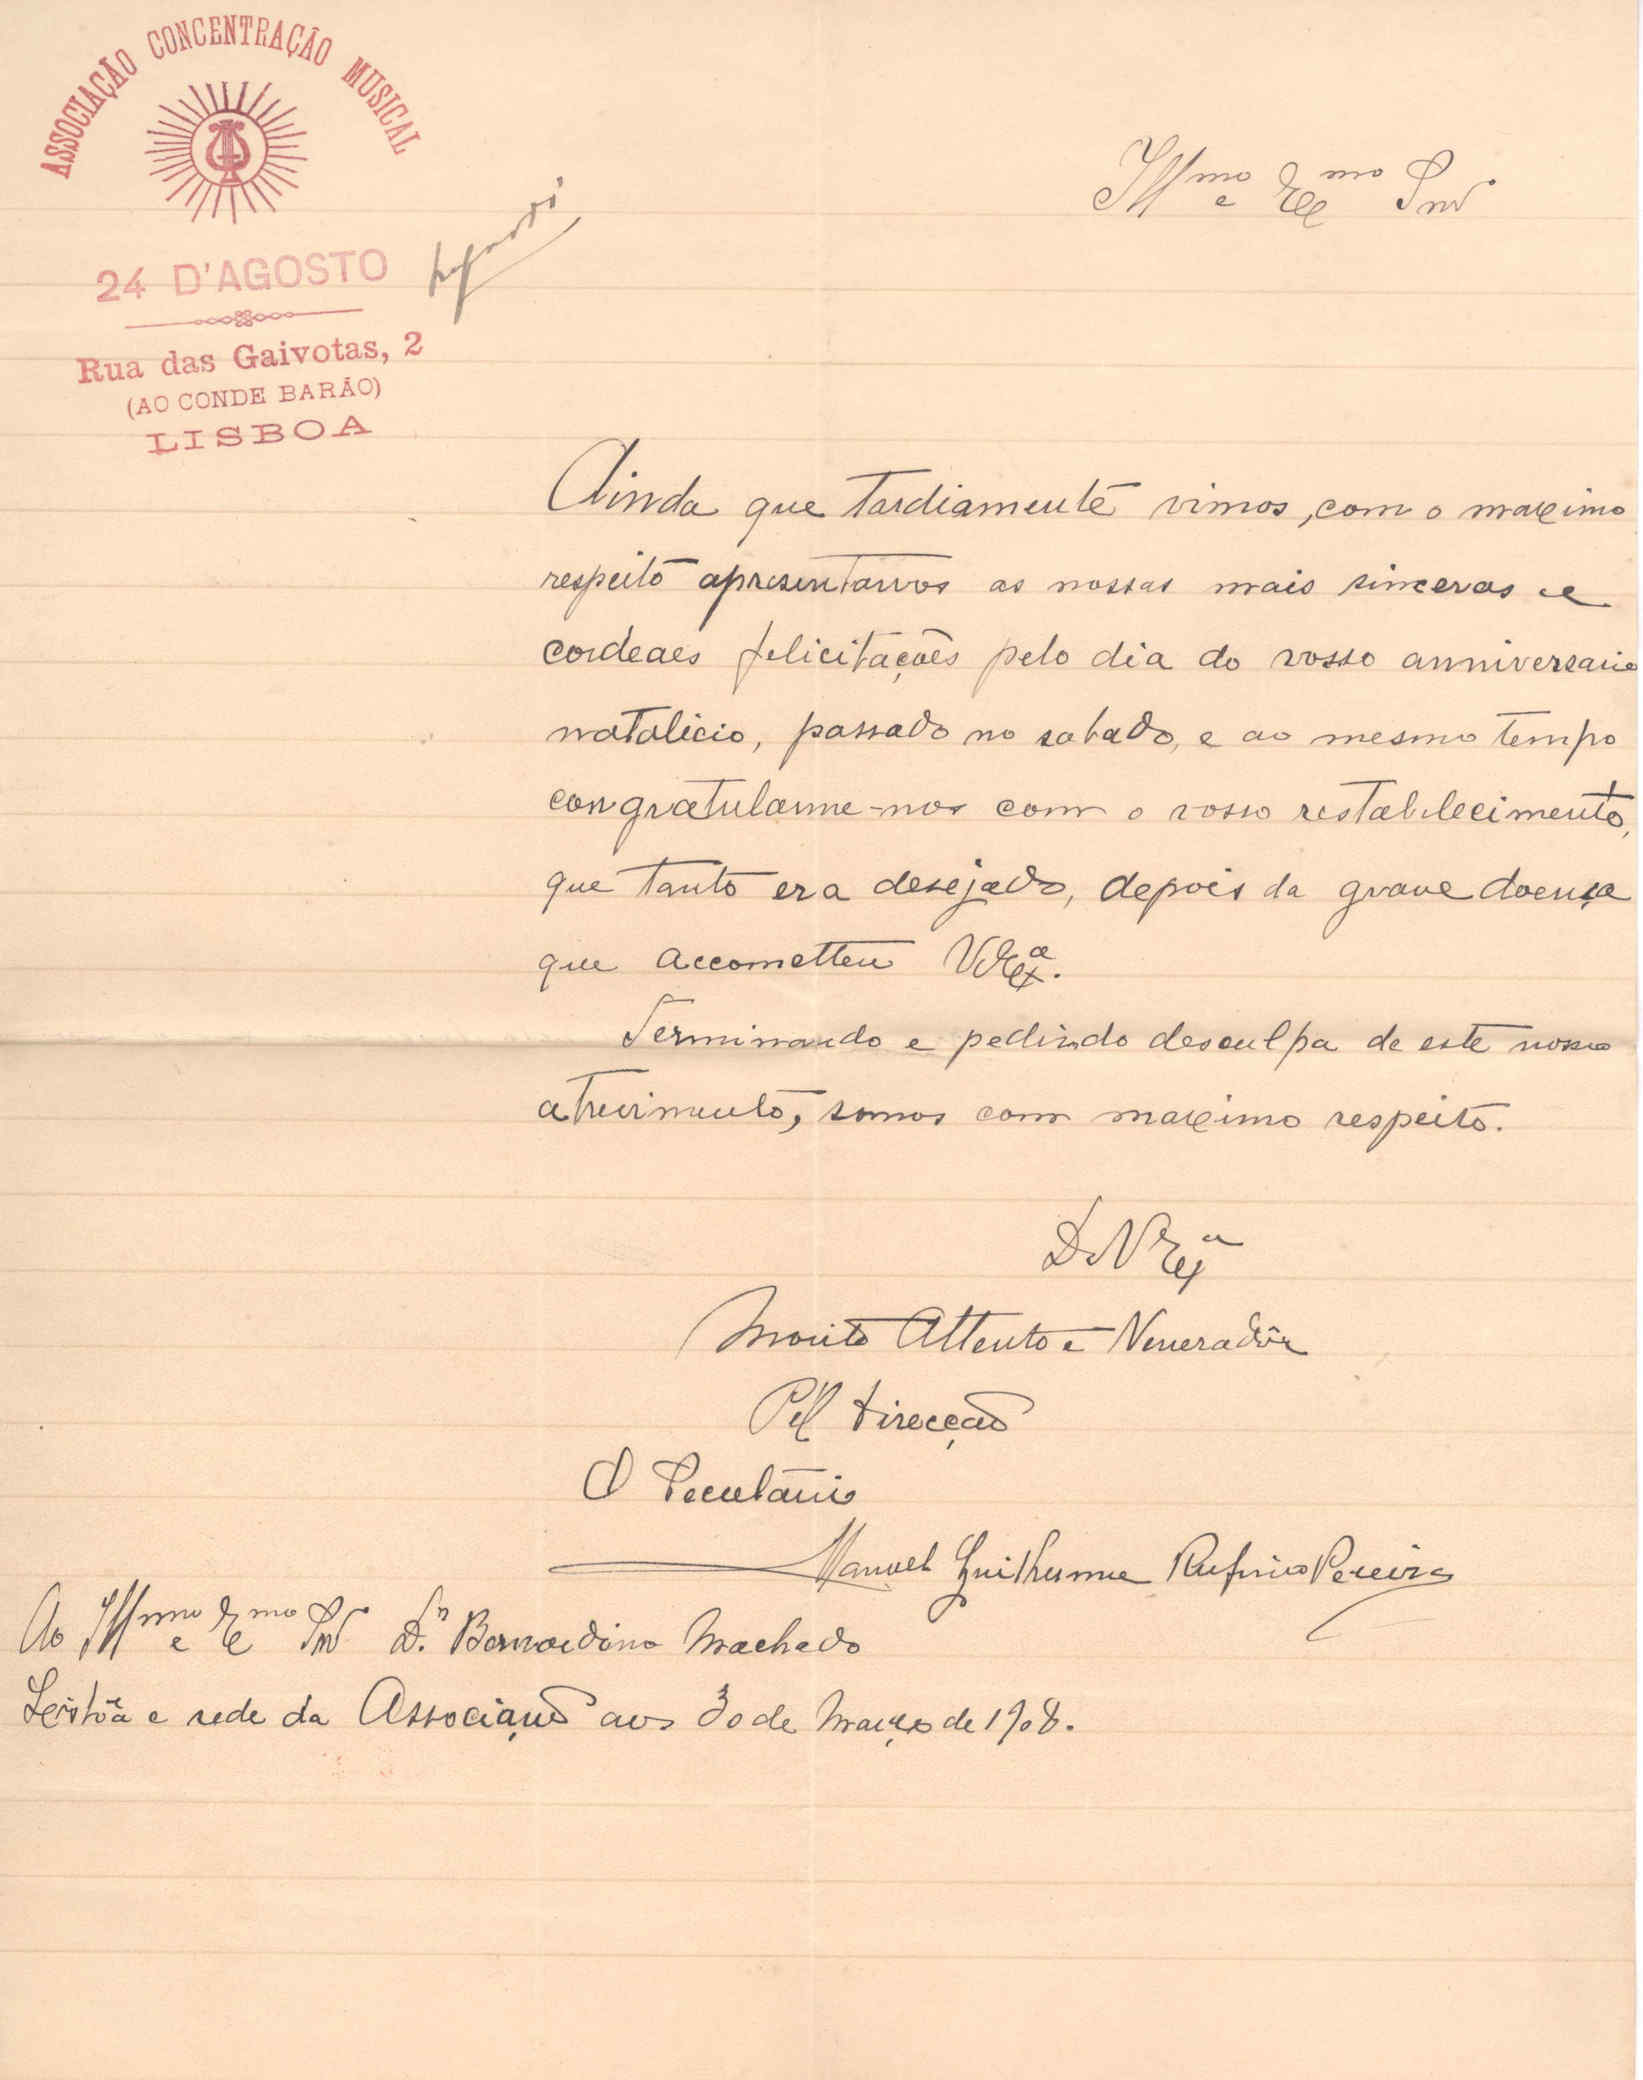 ASSOCIAÇÃO CONCENTRAÇÃO MUSICAL
24 D'AGOSTO
Rua das Gaivotas, 2
(AO CONDE BARÃO)
LISBOA
Illmo e Exmo Snr
Ainda que tardiamente vimos, com o maximo
respeito apresentarvos as nossas mais sinceras e
cordeaes felicitações pelo dia do vosso anniversario
natalicio, passado no sabado, e ao mesmo tempo
congratulamne-nos com o vosso restabelecimento,
que tanto era desejado, depois da grave doença
que accometteu V Exa.
Terminando e pedindo desculpa de este nosso
atrevimento, somos com maximo respeito.
De V Exa
Mouito Attento e Veneradôr
Pel direcção
O Secretário
Manuel Guilherme Rufino Pereira
Ao Illmo e Exmo Snr Dr. Bernardino Machado
Lisbôa e sede da Associação aos 30 de Março de 1908.